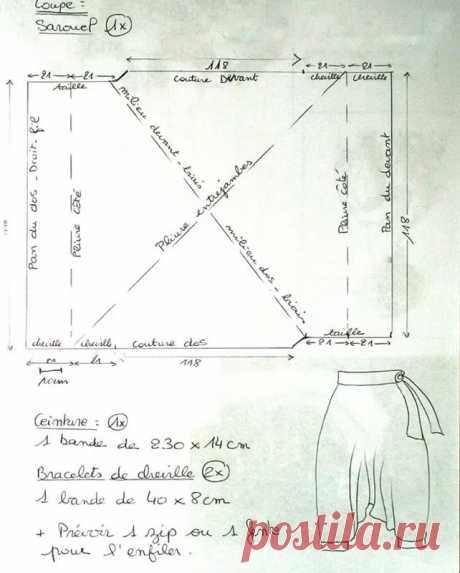 Coupe :
Sarouel 1x
118
21 21
taille
couture Devant
21 21
cheville cheville
Pan du dos - Droit-fil
Pliure côté
milieu devant - biais
Pliure entrejambes
milieu dos - biais
Pliure côté
Pan du devant
118
taille
21 21
cheville cheville
couture dos
21
118
10cm
Ceinture : 1x
1 bande de 230 x 14 cm
Bracelets de cheville 2x
1 bande de 40 x 8 cm
+ Prévoir 1 zip ou 1 fente
pour l'enfiler.
postila.ru